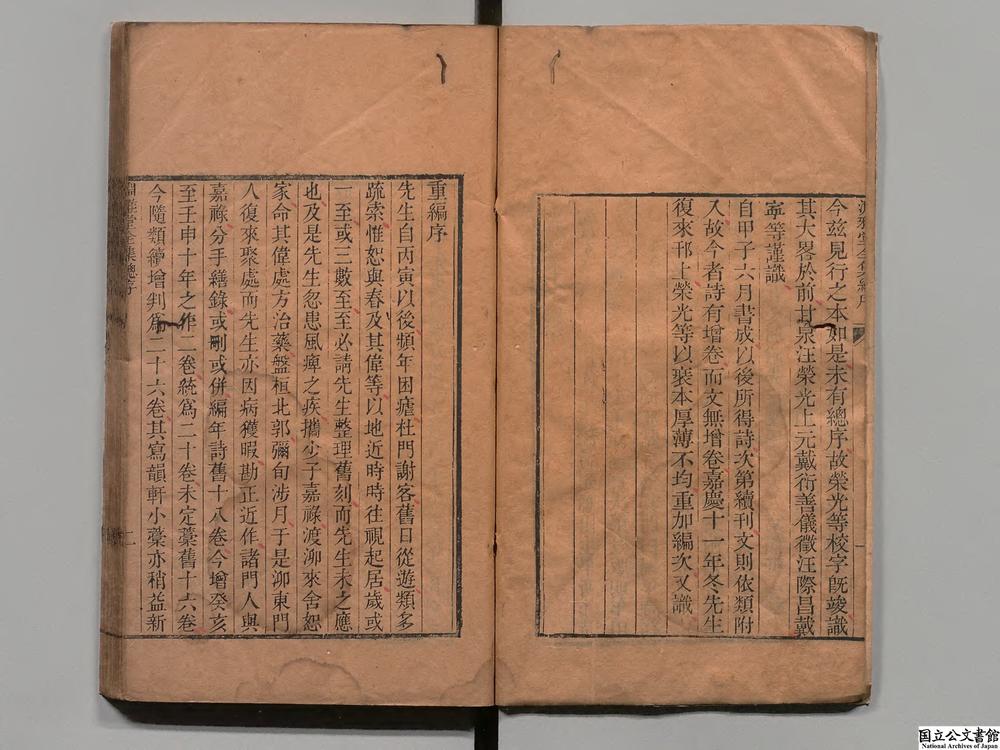 今茲見行之本如是未有總序故榮光等校字既竣識
其大畧於前甘泉汪榮光上元戴衍善儀徵汪際昌戴
寧等謹識
自甲子六月書成以後所得詩次第續刊文則依類附
入故今者詩有增卷而文無增卷嘉慶十一年冬先生
復來邗上榮光等以裘本厚薄不均重加編次又識
一
重編序
先生自丙寅以後頻年困瘧杜門謝客舊日從遊類多
疏索惟恕與春及其偉等以地近時時往視起居歲或
一至或二三數至至必請先生整理舊刻而先生未之應
也及是先生忽患風痺之疾攜少子嘉祿渡泖來舍恕
家命其偉處方治藥盤桓北郭彌旬涉月于是泖東門
人復來聚處而先生亦因病獲暇勘正近作諸門人與
嘉祿分手繕錄或刪或併編年詩舊十八卷今增癸亥
至壬申十年之作二卷統爲二十卷未定藁舊十六卷
今隨類續增判爲二十六卷其寫韻軒小藁亦稍益新
淵雅堂全集總序
二
国立公文書館
National Archives of Japan